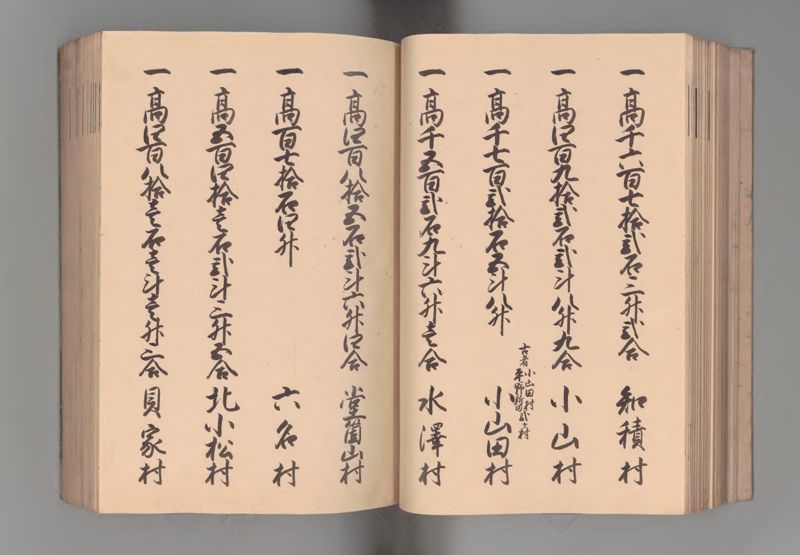 一 高千六百七拾弐石三升弐合 知積村
一 高四百九拾弐石弐斗八升九合 小山村
一 高千七百弐拾石五斗八升 小山田村
古者小山田村
平野新田弐ヶ村
一 高千五百弐石九斗六升壱合 水澤村
一 高四百八拾五石弐斗六升四合 堂箇山村
一 高百七拾石四升 六名村
一 高五百四拾壱石弐斗三升五合 北小松村
一 高四百八拾壱石壱斗壱升三合 貝家村